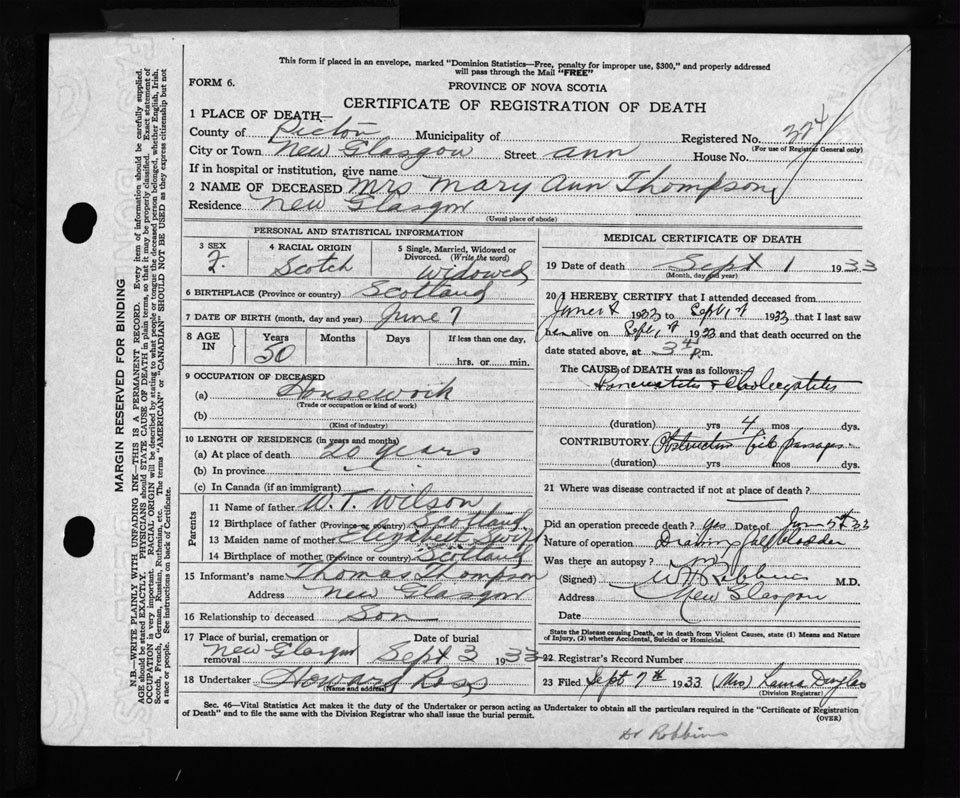 This form if placed in an envelope, marked "Dominion Statistics—Free, penalty for improper use, $300," and properly addressed
will pass through the Mail "FREE"
FORM 6.
PROVINCE OF NOVA SCOTIA
CERTIFICATE OF REGISTRATION OF DEATH
1 PLACE OF DEATH—
County of Pictou Municipality of Registered No. 324
(For use of Registrar General only)
City or Town New Glasgow Street Ann House No.
If in hospital or institution, give name
2 NAME OF DECEASED Mrs Mary Ann Thompson
Residence New Glasgow
(Usual place of abode)
PERSONAL AND STATISTICAL INFORMATION
3 SEX F.
4 RACIAL ORIGIN Scotch
5 Single, Married, Widowed or Divorced. (Write the word) Widowed
6 BIRTHPLACE (Province or country) Scotland
7 DATE OF BIRTH (month, day and year) June 7
8 AGE IN Years 50 Months Days If less than one day, hrs. or min.
9 OCCUPATION OF DECEASED
(a) Housework
(Trade or occupation or kind of work)
(b)
(Kind of industry)
10 LENGTH OF RESIDENCE (in years and months)
(a) At place of death 20 years
(b) In province
(c) In Canada (if an immigrant)
Parents
11 Name of father W. T. Wilson
12 Birthplace of father (Province or country) Scotland
13 Maiden name of mother Elizabeth Swift
14 Birthplace of mother (Province or country) Scotland
15 Informant's name Thomas Thompson
Address New Glasgow
16 Relationship to deceased Son
17 Place of burial, cremation or removal New Glasgow
Date of burial Sept 3 1933
18 Undertaker Howard Ross
(Name and address)
MEDICAL CERTIFICATE OF DEATH
19 Date of death Sept 1 1933
(Month, day and year)
20 I HEREBY CERTIFY that I attended deceased from
1933 to Sept 1st 1933 that I last saw
her alive on Sept 1st 1933 and that death occurred on the
date stated above, at 3 P.m.
The CAUSE of DEATH was as follows:
Pancreatitis & Cholecystitis
(duration) yrs 4 mos. dys.
CONTRIBUTORY Obstruction bile passages
(duration) yrs mos dys.
21 Where was disease contracted if not at place of death?
Did an operation precede death? Yes Date of June 5th 33
Nature of operation Draining gall bladder
Was there an autopsy? no
(Signed) Robbins M.D.
Address New Glasgow
Date
State the Disease causing Death, or in death from Violent Causes, state (1) Means and Nature
of Injury, (2) whether Accidental, Suicidal or Homicidal.
22 Registrar's Record Number
23 Filed Sept 7th 1933 (Mrs) Laura Douglas
(Division Registrar)
Sec. 46—Vital Statistics Act makes it the duty of the Undertaker or person acting as Undertaker to obtain all the particulars required in the "Certificate of Registration
of Death" and to file the same with the Division Registrar who shall issue the burial permit.
(OVER)
Dr Robbins
MARGIN RESERVED FOR BINDING
N.B.—WRITE PLAINLY WITH UNFADING INK—THIS IS A PERMANENT RECORD. Every item of information should be carefully supplied.
AGE should be stated EXACTLY. PHYSICIANS should STATE CAUSE OF DEATH in plain terms, so that it may be properly classified. Exact statement of
OCCUPATION is very important. RACIAL ORIGIN will be described by stating to what people or tongue the deceased person belonged, whether English, Irish,
Scotch, French, German, Russian, Ruthenian, etc. The terms "AMERICAN" or "CANADIAN" SHOULD NOT BE USED as they express citizenship but not
a race or people. See instructions on back of Certificate.